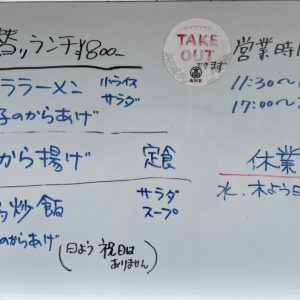 替りランチ ¥800-
ラーメン 小ライス
サラダ
子のからあげ
から揚げ 定食
炒飯 サラダ
スープ
のからあげ
(日よう 祝日は
ありません)
TAKE
OUT
できます
営業時
11:30〜
17:00〜
休業
水.木よう日